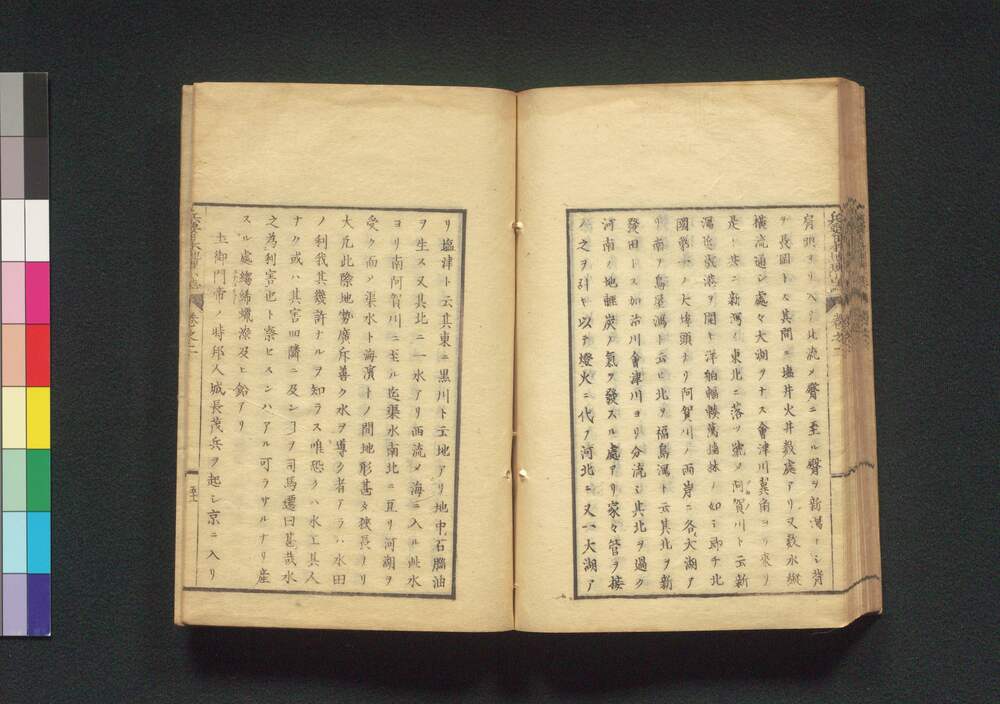 肩頭ヨリ入ル北流メ臀ニ至ル臀ヲ新潟トシ背
ヲ長岡トス其間ニ塩井火井数處アリ又数水縦
横流通シ處々大湖ヲナス會津川巽角ヨリ來リ
是ト共ニ新潟ノ東北ニ落ツ號メ阿賀川ト云新
潟近歳港ヲ開ト洋舶輻輳萬檣林ノ如シ即チ北
國第一ノ大埠頭ナリ阿賀川ノ兩岸ニ各大湖ア
リ南ヲ鳥屋潟ト云ヒ北ヲ福島潟ト云其北ヲ新
發田トス加治川會津川ヨリ分流シ其北ヲ過ク
河南ノ地輕炭ノ氣ヲ發スル處アリ家々管ヲ接
メ之ヲ引キ以テ燈火ニ代ヲ河北ニ又一大湖ア
リ塩津ト云其東ニ黒川ト云地アリ地中石腦油
ヲ生ス又其北ニ一水アリ西流メ海ニ入ル此水
ヨリ南阿賀川ニ至ル迄渠水南北ニ亘リ河湖ヲ
受ク而メ渠水ト海濱トノ間地形甚タ狹長ナリ
大凡此際地勢廣斥善ク水ヲ導ク者アラハ水田
ノ利我其幾許ナルヲ知ラス唯恐クハ水工其人
ナク或ハ其害四隣ニ及ンヿヲ司馬遷曰甚哉水
之為利害也ト察ヒスンハアル可ラサルナリ産
スル處縐絺蠟漆及ヒ鉛アリ
土御門帝ノ時邦人城長茂兵ヲ起シ京ニ入リ
卷之二
五